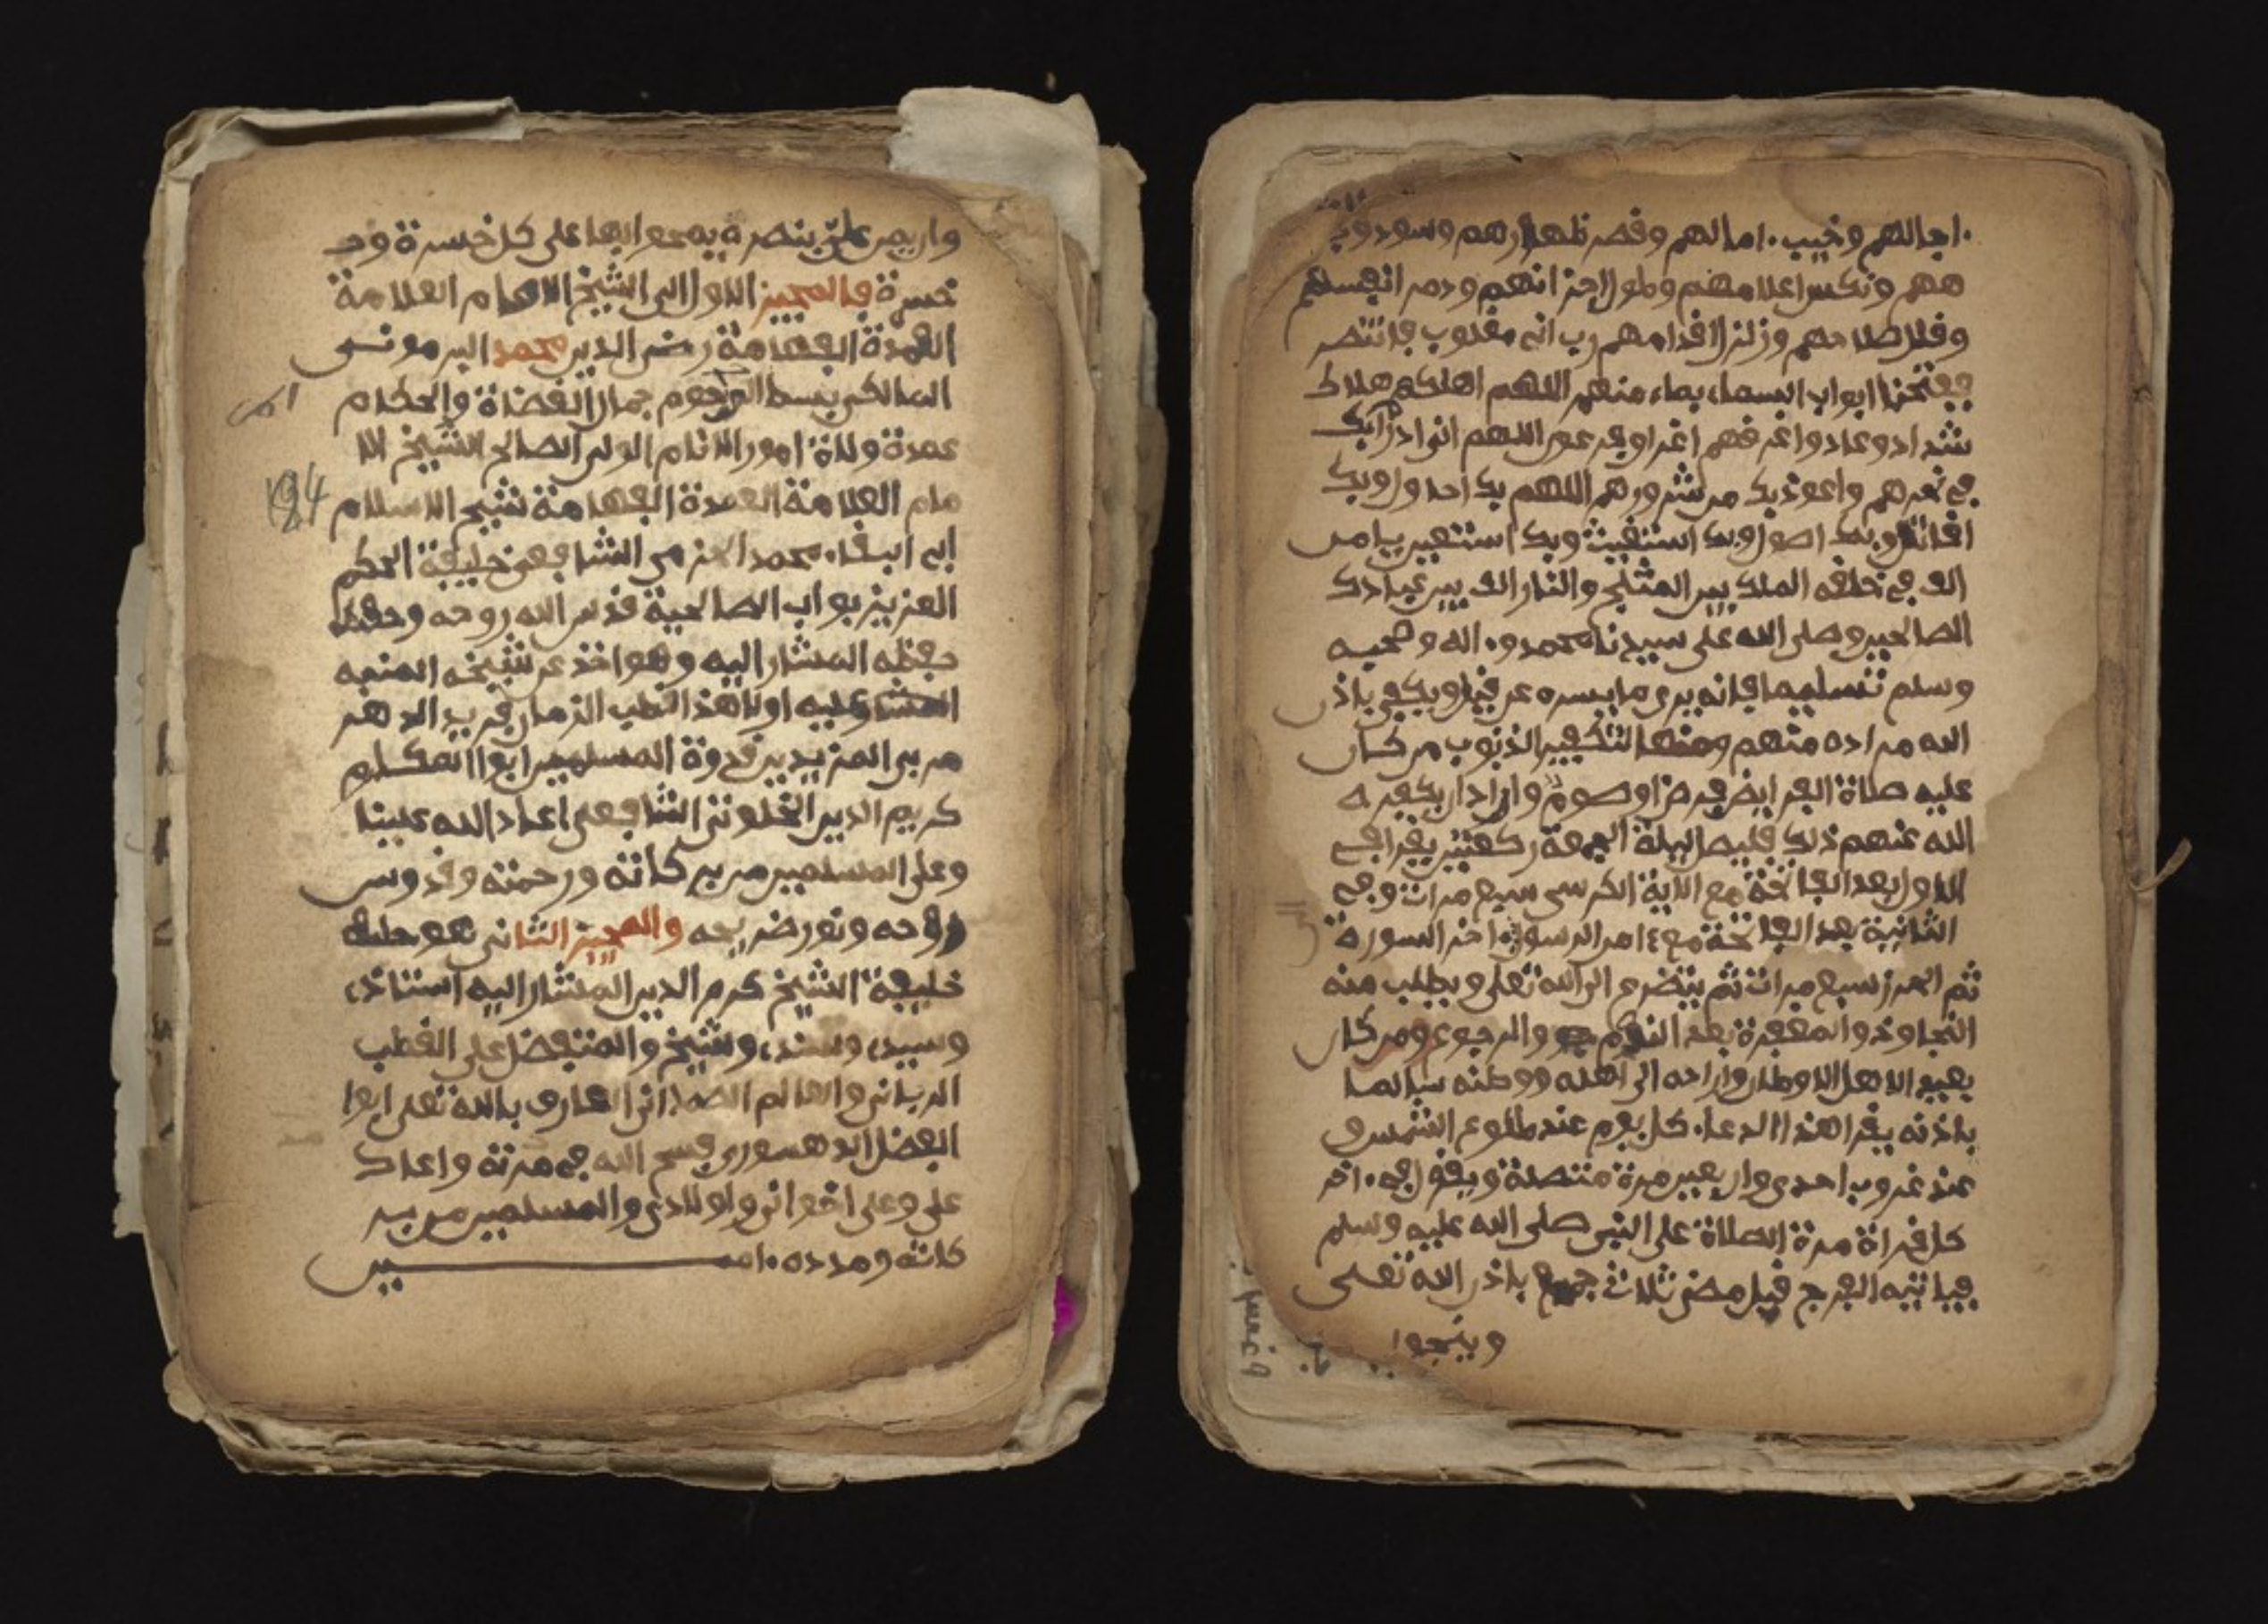 اجالهم وخيب امالهم وقصر ظهارهم وسود وجو
ههم ونكس اعلامهم وطول احزانهم ودمر انفسهم
وقلل صلاحهم وزلزل اقدامهم رب اني مغلوب فانتصر
ففتحنا ابواب السماء بماء منهمر اللهم اهلكهم هلاك
شداد وعاد واغرقهم اغراق فرعون اللهم اني ادرأ بك
في نحرهم واعوذ بك من شرورهم اللهم بك احاول وبك
اقاتل وبك اصول وبك استغيث وبك استعين يا من
الف في خلقه الملك بين الثلج والنار الف بين عبادك
الصالحين وصلى الله على سيدنا محمد واله وصحبه
وسلم تسليما فانه يرى ما يسره عن قليل ويكفى باذن
الله مراده منهم ومنها لتكفير الذنوب من كان
عليه صلاة الفرايض فرضا وصوم واراد ان يكفره
الله عنهم ذلك فليصل ليلة الجمعة ركعتين يقرا في
الاول بعد الفاتحة مع الاية الكرسي سبع مرات وفي
الثانية بعد الفاتحة مع امن الرسول اخر السورة
ثم سبع مرات ثم يتضرع الى الله تعلى ويطلب منه
التجاوز والمغفرة بعد الندم والرجوع ومن كان
بعيد الاهل الاوطان واراده الى اهله ووطنه سالما
باذنه يقرا هذا الدعاء كل يوم عند طلوع الشمس و
عند غروب احدى واربعين مرة متصلة ويقول في اخر
كل قراة مرة الصلاة على النبي صلى الله عليه وسلم
فياتيه الفرج قبل مضي ثلاث جمع باذن الله تعلى
وينجوا
واربعين على بنصره يمحو ايها على كل خسرة وحـ
خسرة فالمجيز الاول الي الشيخ الامام العلامة
العمدة الفهامة رضى الدين محمد البرموني
المالكي بسط المرحوم جمال القضاة والحكام
عمدة ولاة امور الانام الولي الصالح الشيخ الا
مام العلامة العمدة الفهامة شيخ الاسلام
194
ابى البقاء محمد الشافعي خليفة الحكم
العزيز بواب الصالحية قدس الله روحه وحفظ
حفظه المشار اليه وهو اخذ عن شيخه المنبه
عليه اولا هذا القطب الزمان فريد الدهر
مربي المريدين قدوة المسلمين ابوا المكارم
كريم الدين الخلوتي الشافعي اعاد الله علينا
وعلى المسلمين من بركاته ورحمته وقدوس
روحه ونور ضريحه والمجيز الثاني هو
خليفة الشيخ كرم الدين المشار اليه استاذي
وسيدي وسندي وشيخ والمتفضل على القطب
الرباني والعالم الصمداني العارف بالله تعلى ابوا
الفضل الدهسوري فسح الله في مدته واعاد
على وعلى اخواني واولادي والمسلمين من بر
كاته ومدده امين